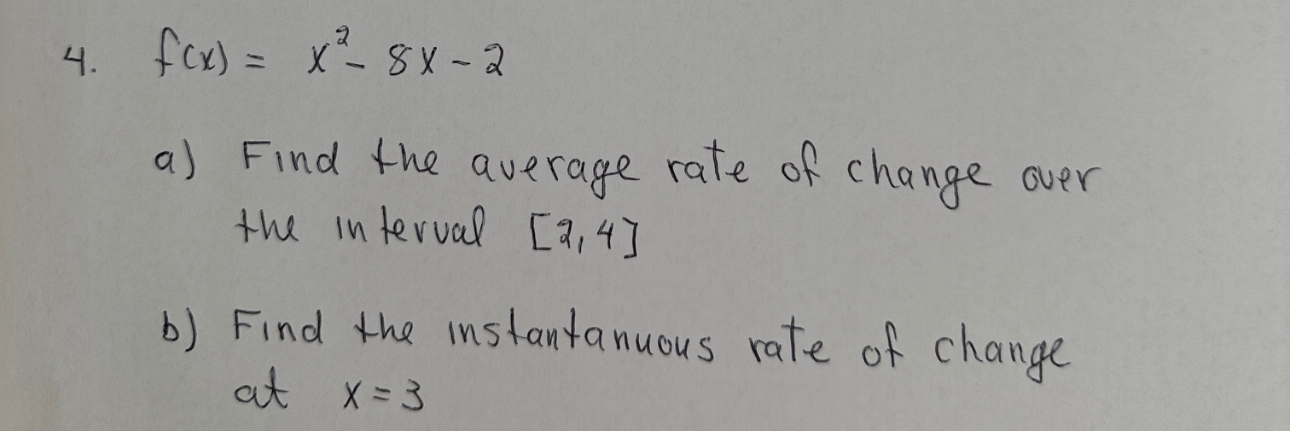 4. f(x) = x² - 8x - 2
a) Find the average rate of change over
the interval [2,4]
b) Find the instantanuous rate of change
at x = 3